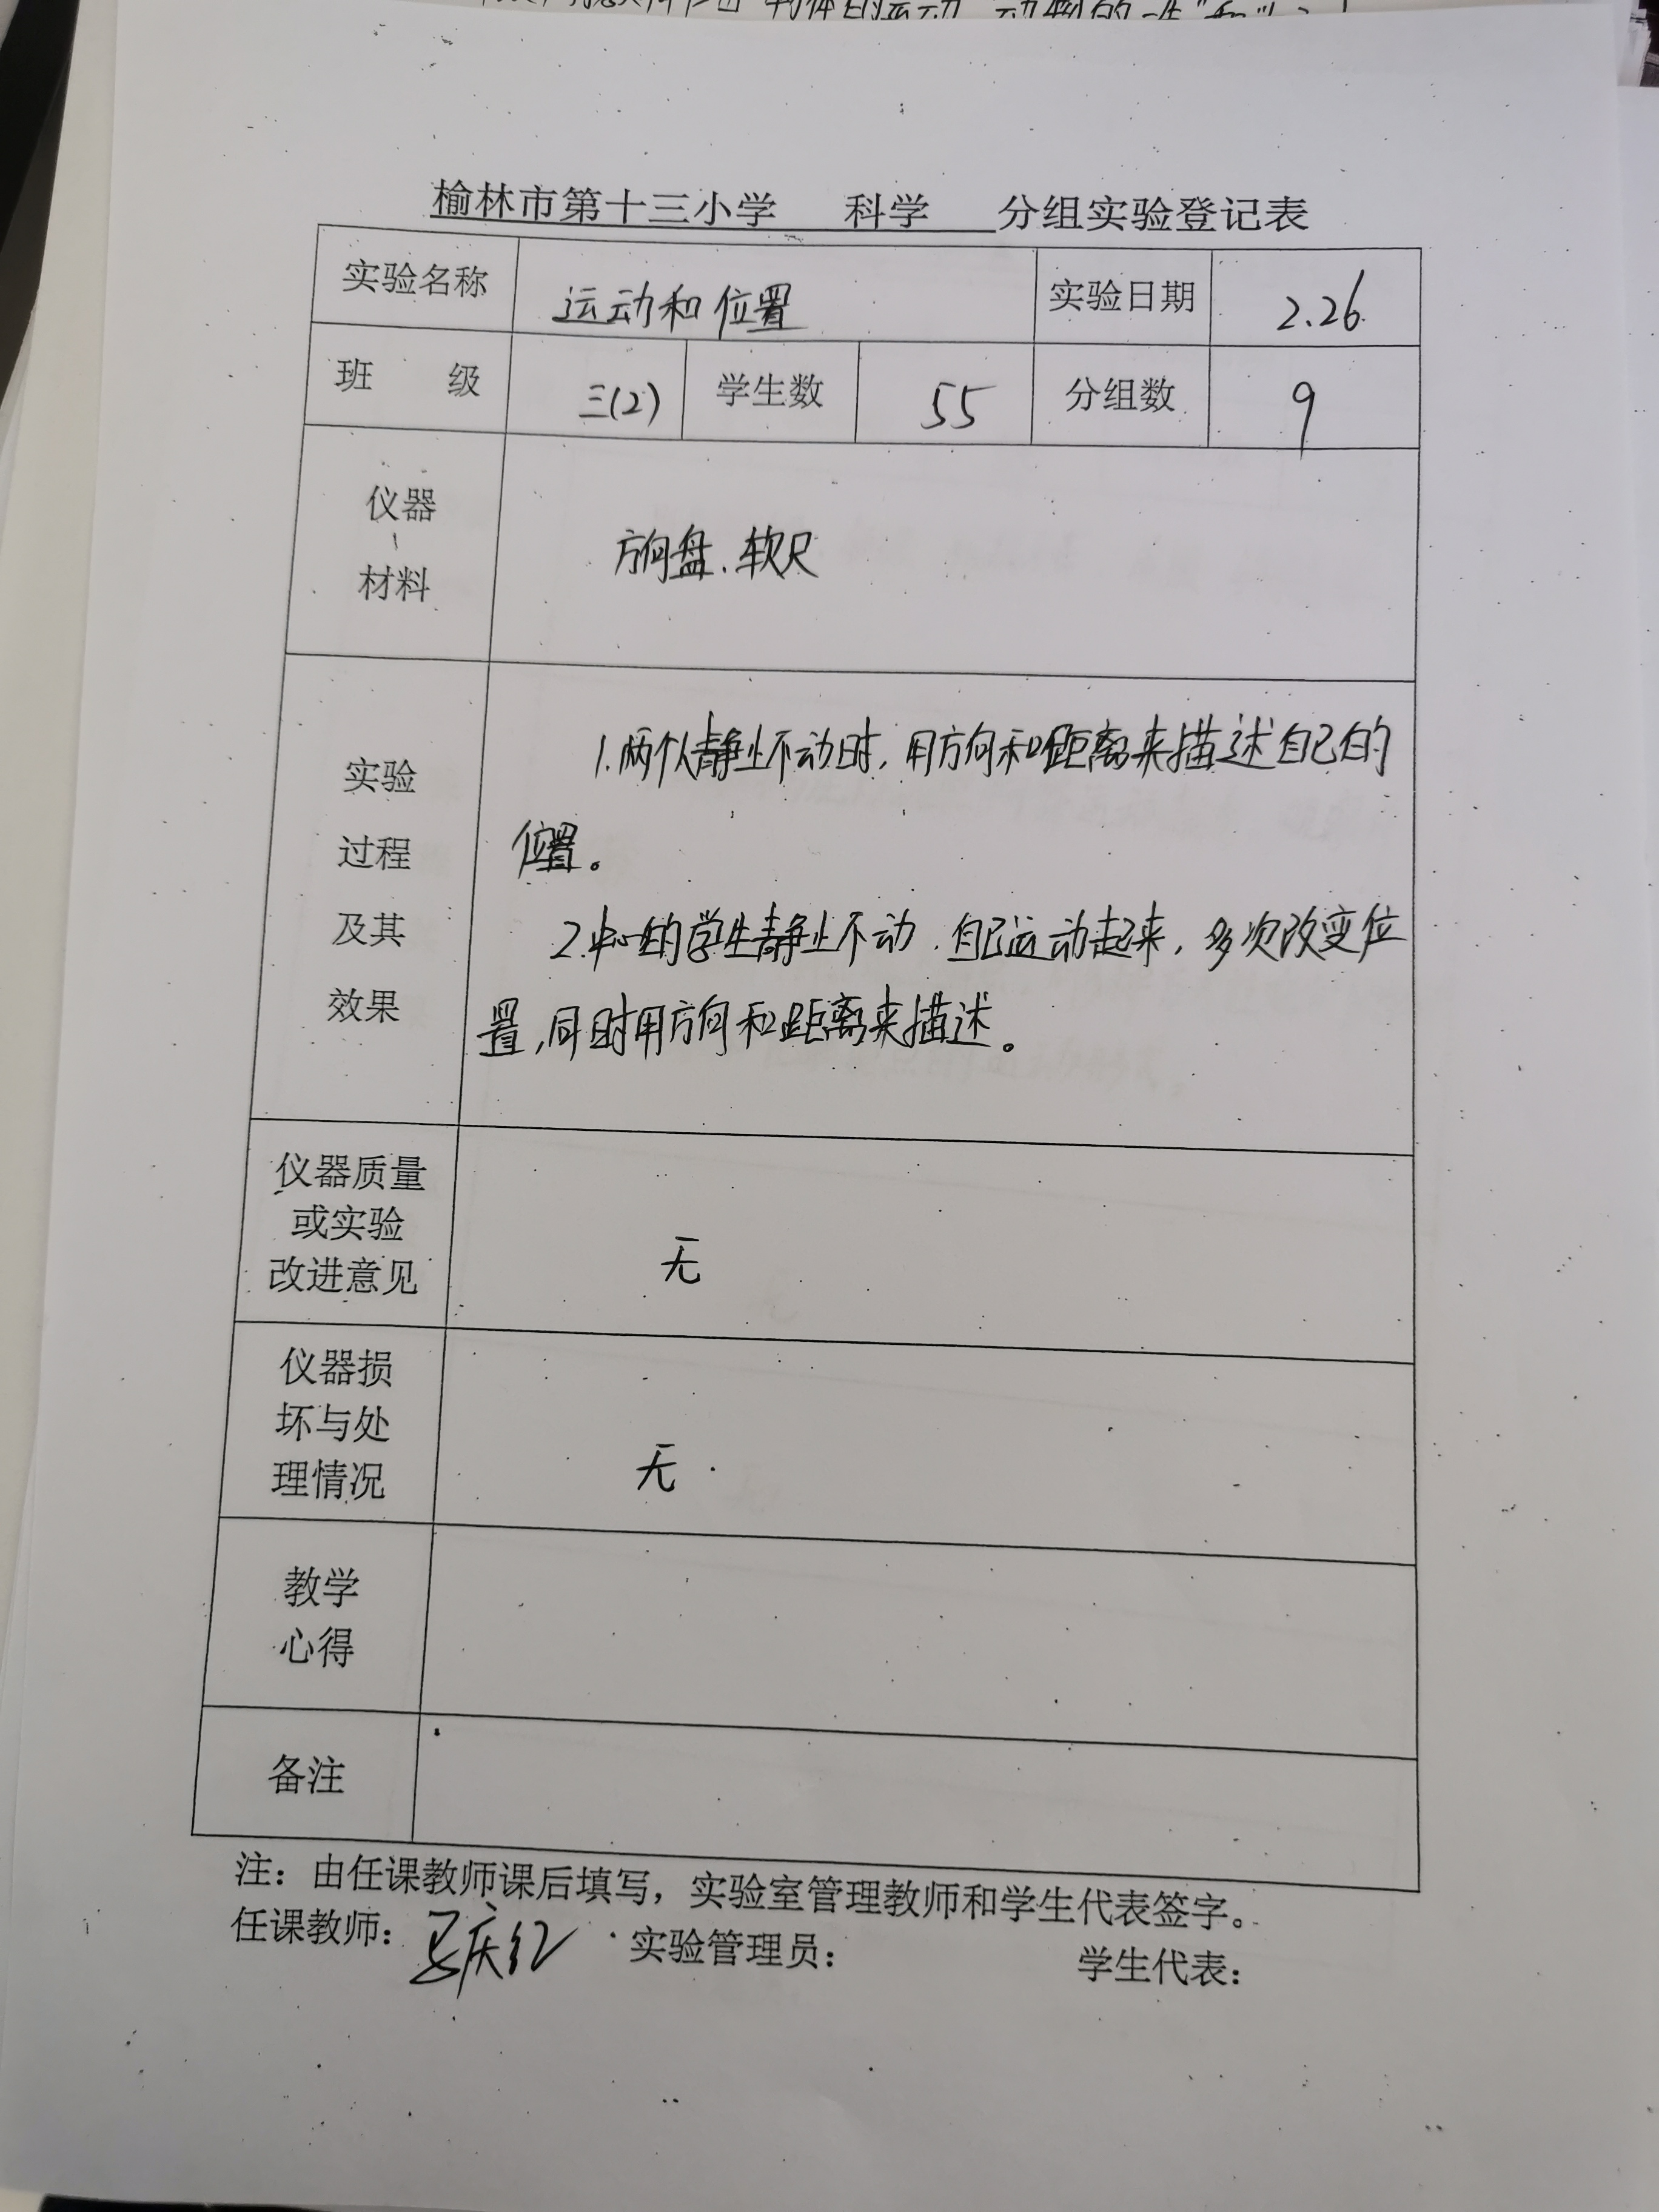 榆林市第十三小学 科学 分组实验登记表
实验名称 运动和位置 实验日期 2.26
班 级 三(2) 学生数 55 分组数 9
仪器
材料
方向盘、软尺
实验
过程
及其
效果
1.两个人静止不动时,用方向和距离来描述自己的
位置。
2.中心的学生静止不动,自己运动起来,多次改变位
置,同时用方向和距离来描述。
仪器质量
或实验
改进意见
无
仪器损
坏与处
理情况
无
教学
心得
备注
注:由任课教师课后填写,实验室管理教师和学生代表签字。
任课教师: 实验管理员: 学生代表: